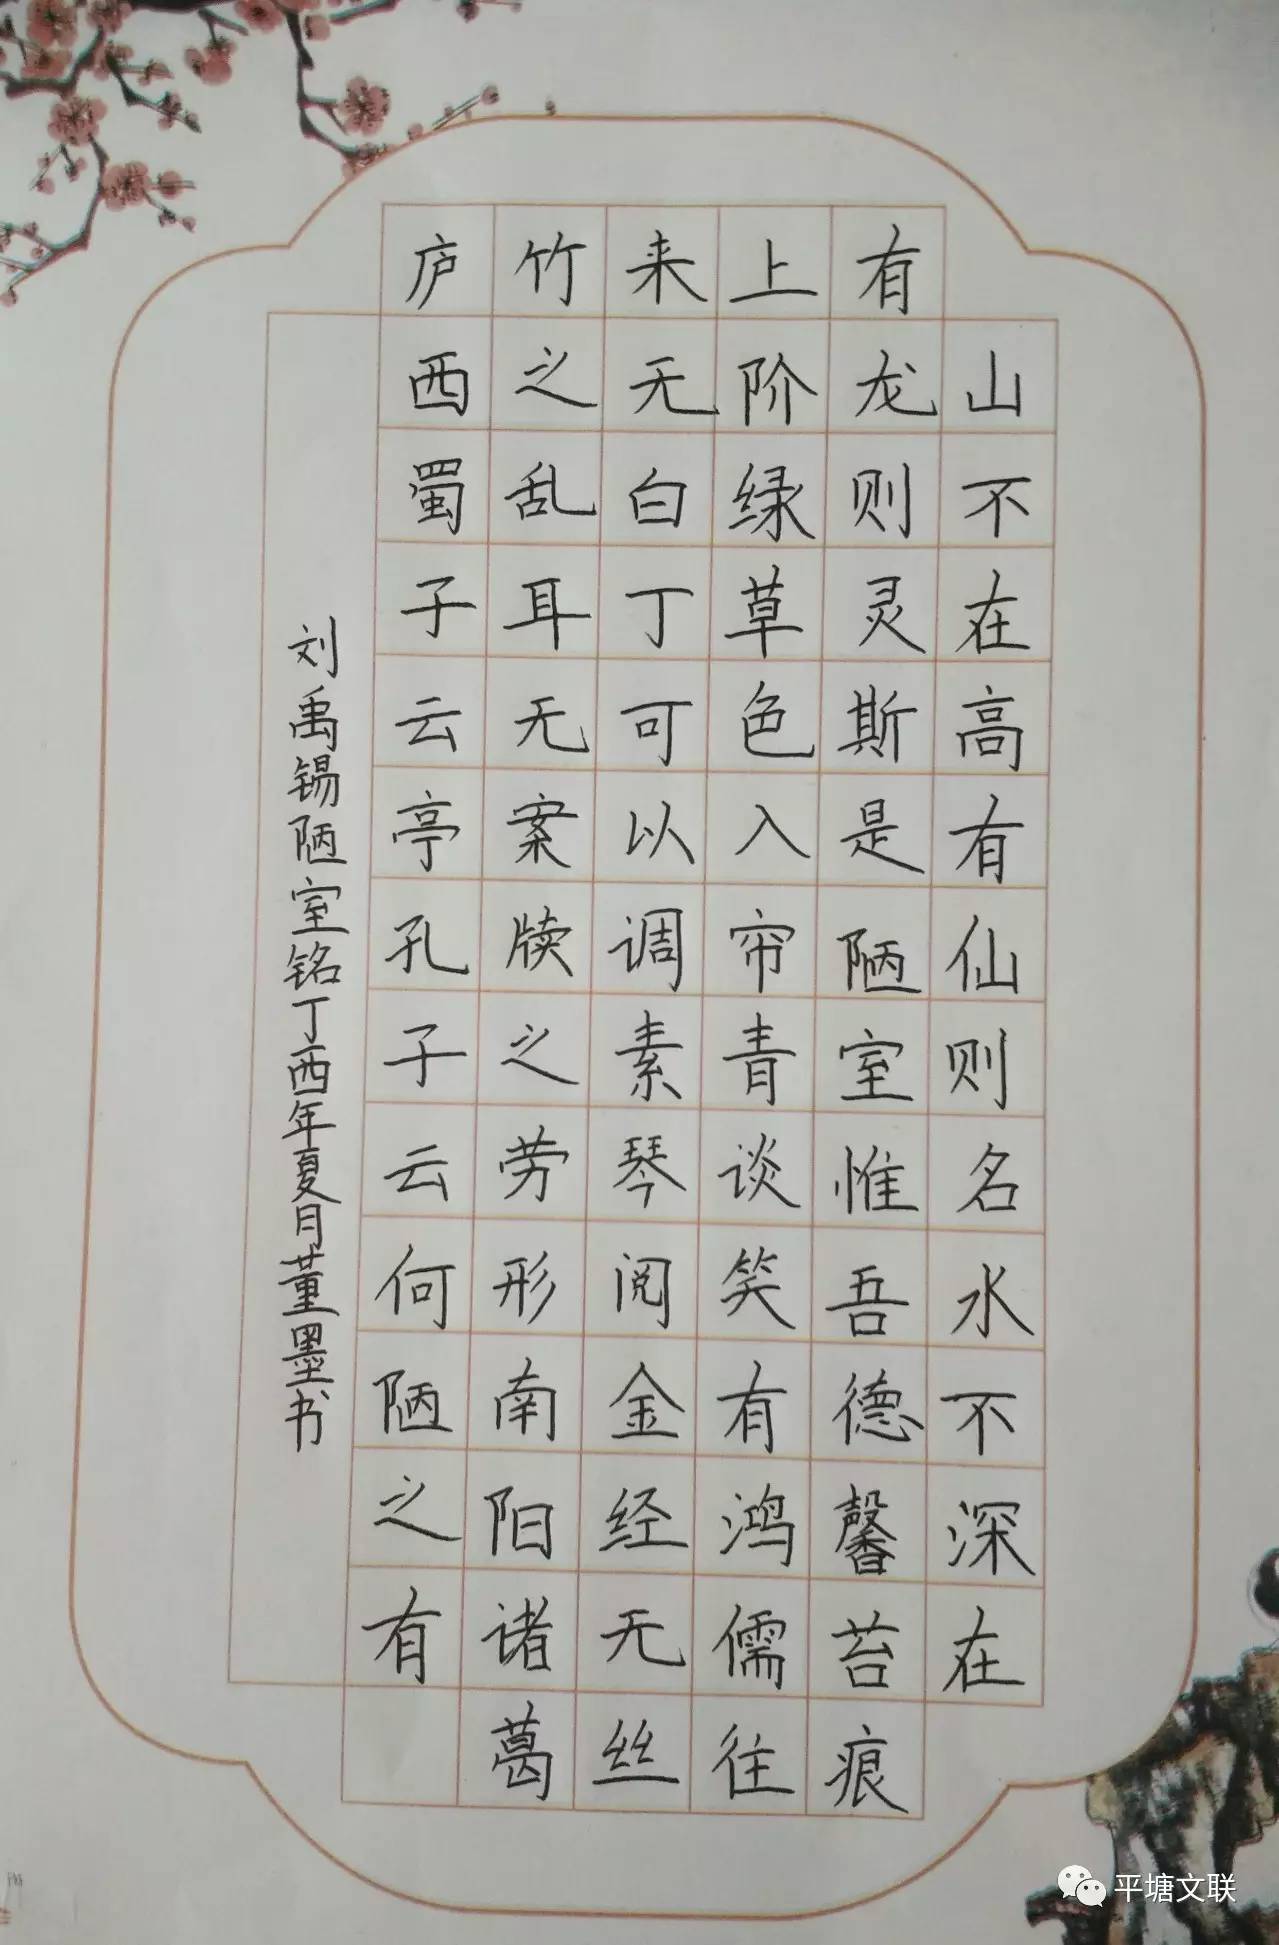 山不在高有仙则名水不深在
有龙则灵斯是陋室惟吾德馨苔痕
上阶绿草色入帘青谈笑有鸿儒往
来无白丁可以调素琴阅金经无丝
竹之乱耳无案牍之劳形南阳诸葛
庐西蜀子云亭孔子云何陋之有
刘禹锡陋室铭丁酉年夏月董墨书
平塘文联